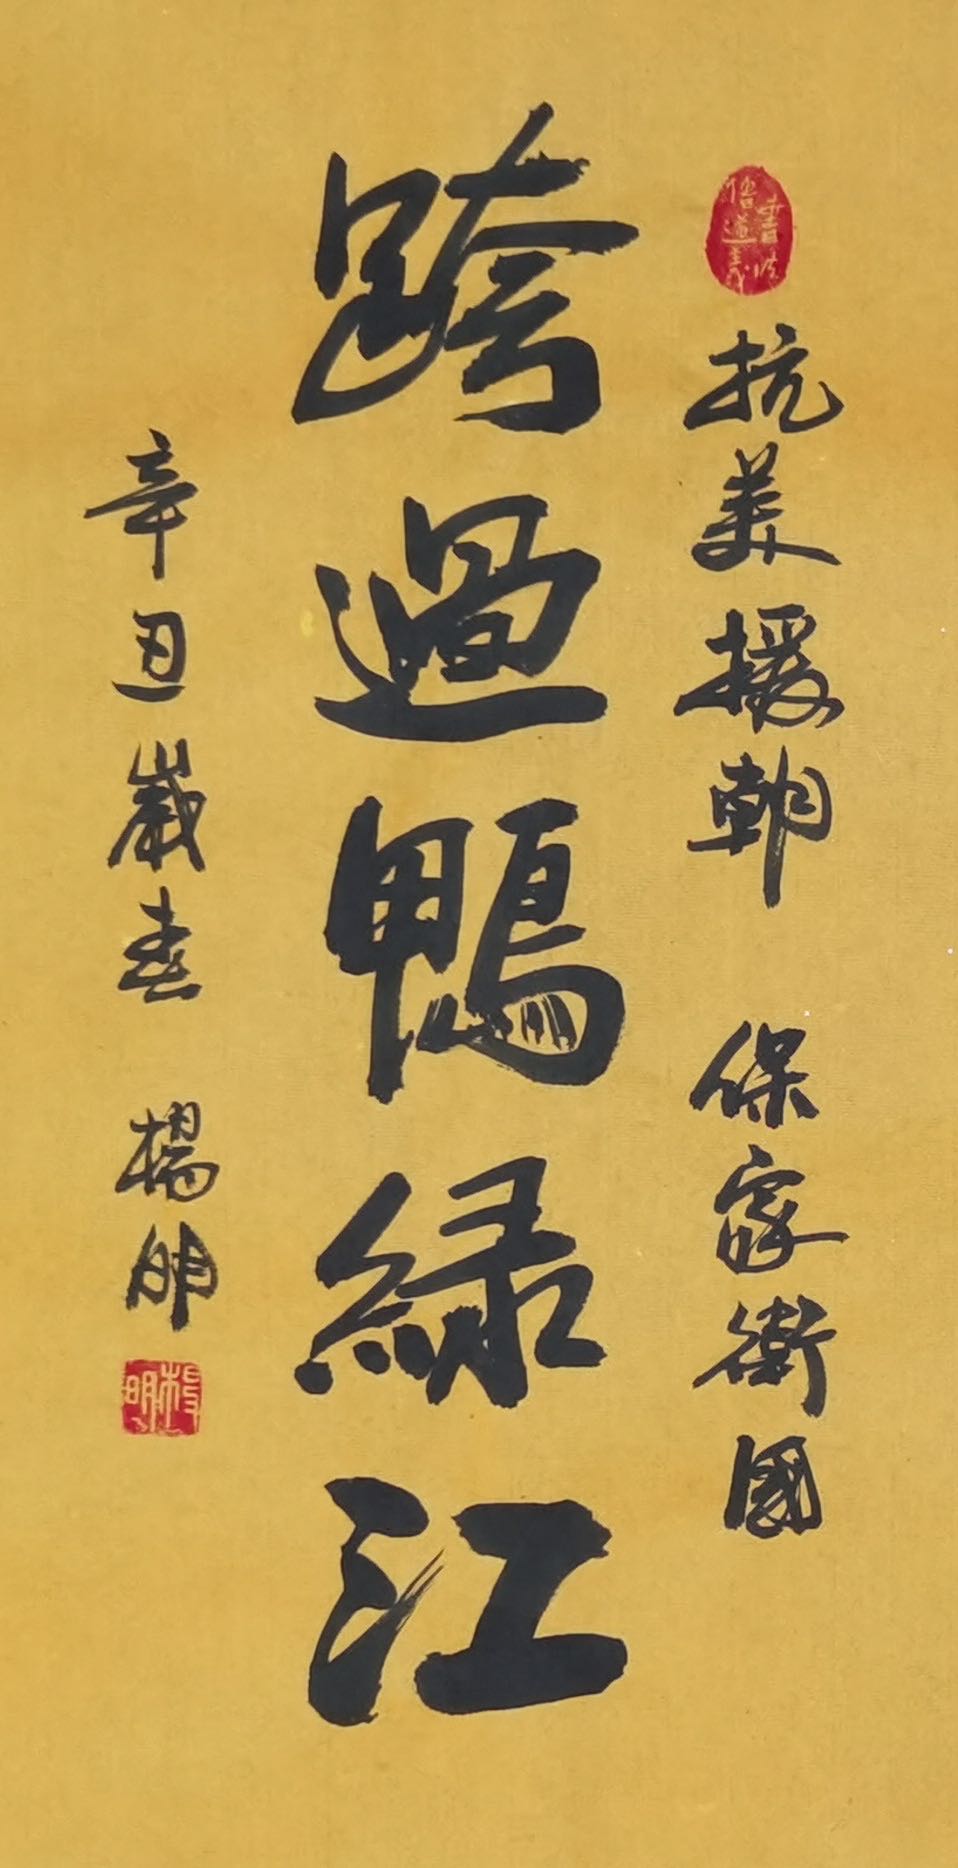 抗美援朝 保家衛國
跨過鴨緑江
辛丑歲春 楊明
楊明